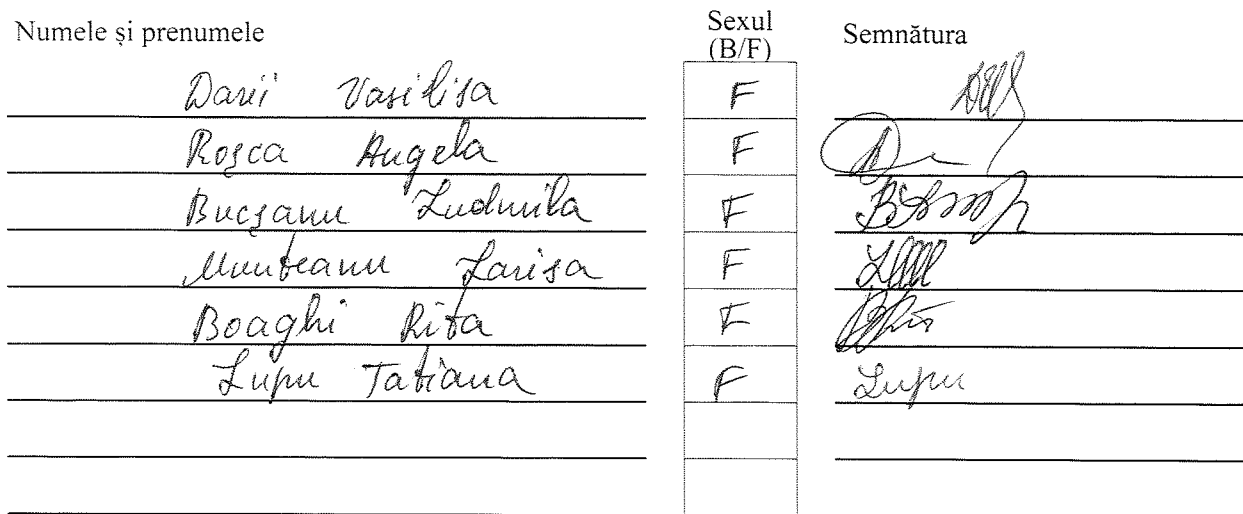 Numele și prenumele Sexul (B/F) Semnătura
Darii Vasilisa F
Roșca Angela F
Bucșanu Ludmila F
Munteanu Larisa F
Boaghi Rita F
Lupu Tatiana F Lupu